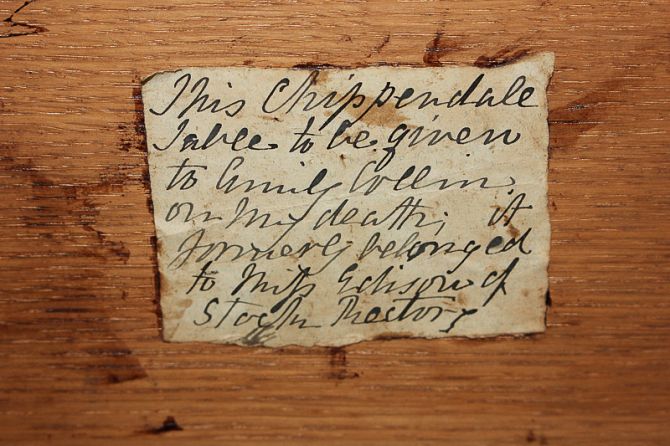 This Chippendale
Table to be given
to Emily Collin
on my death; it
formerly belonged
to Miss Edison of
Stock Rectory